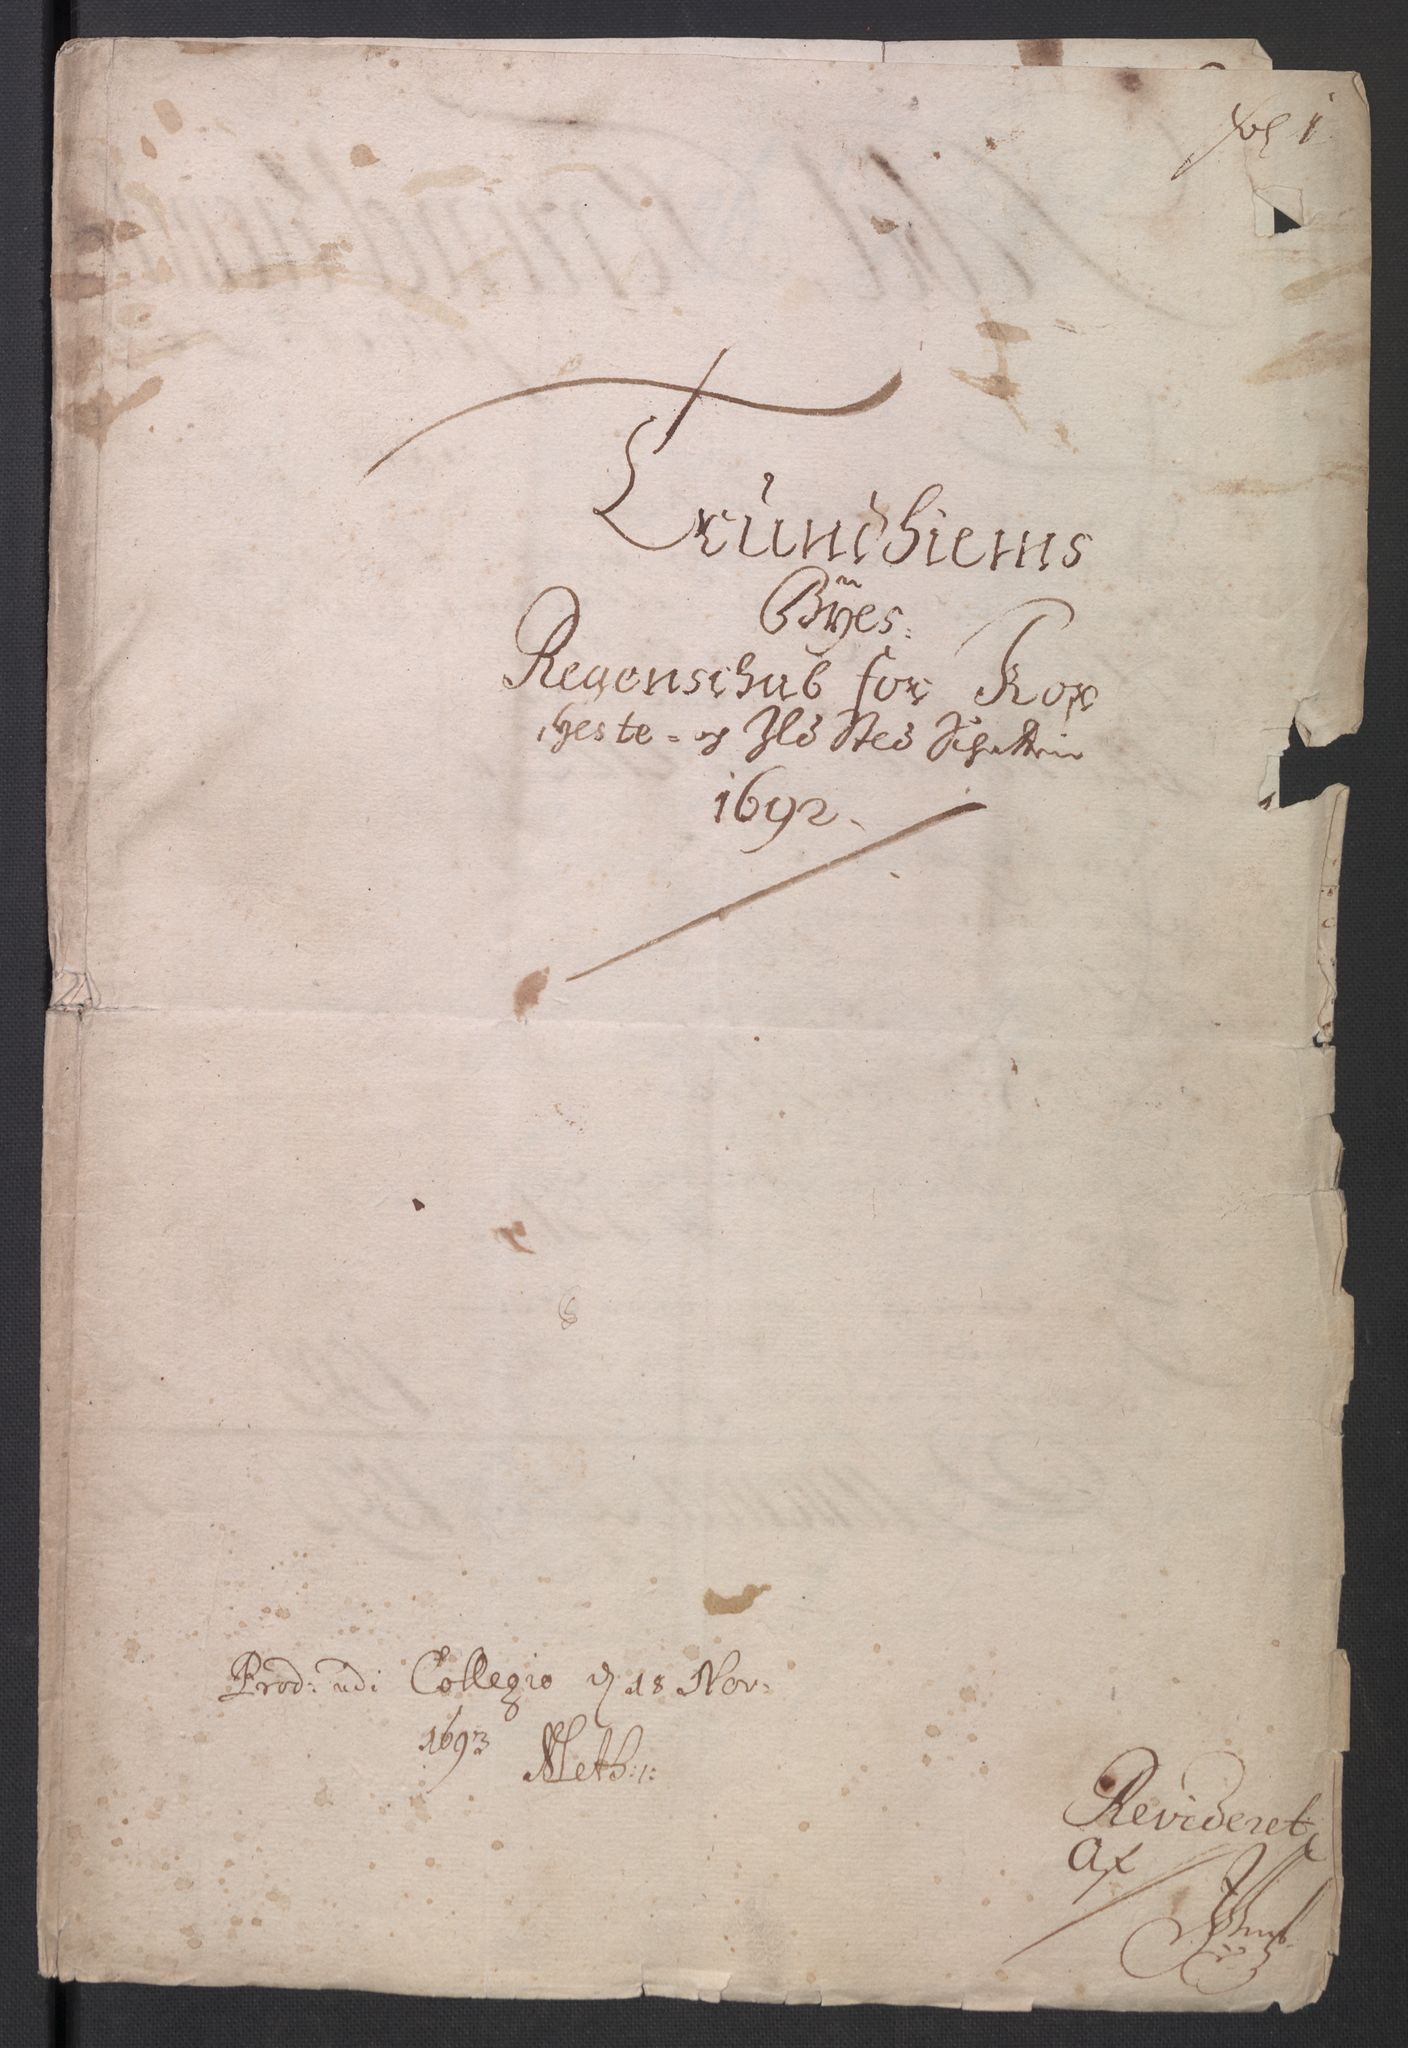 Trundhiems
Byes.
Regenschab for Kop
heste- og Ild Sted Schatten
1692.
Prod: udi Collegio d 18 Nov:
1693
Revideret
Af